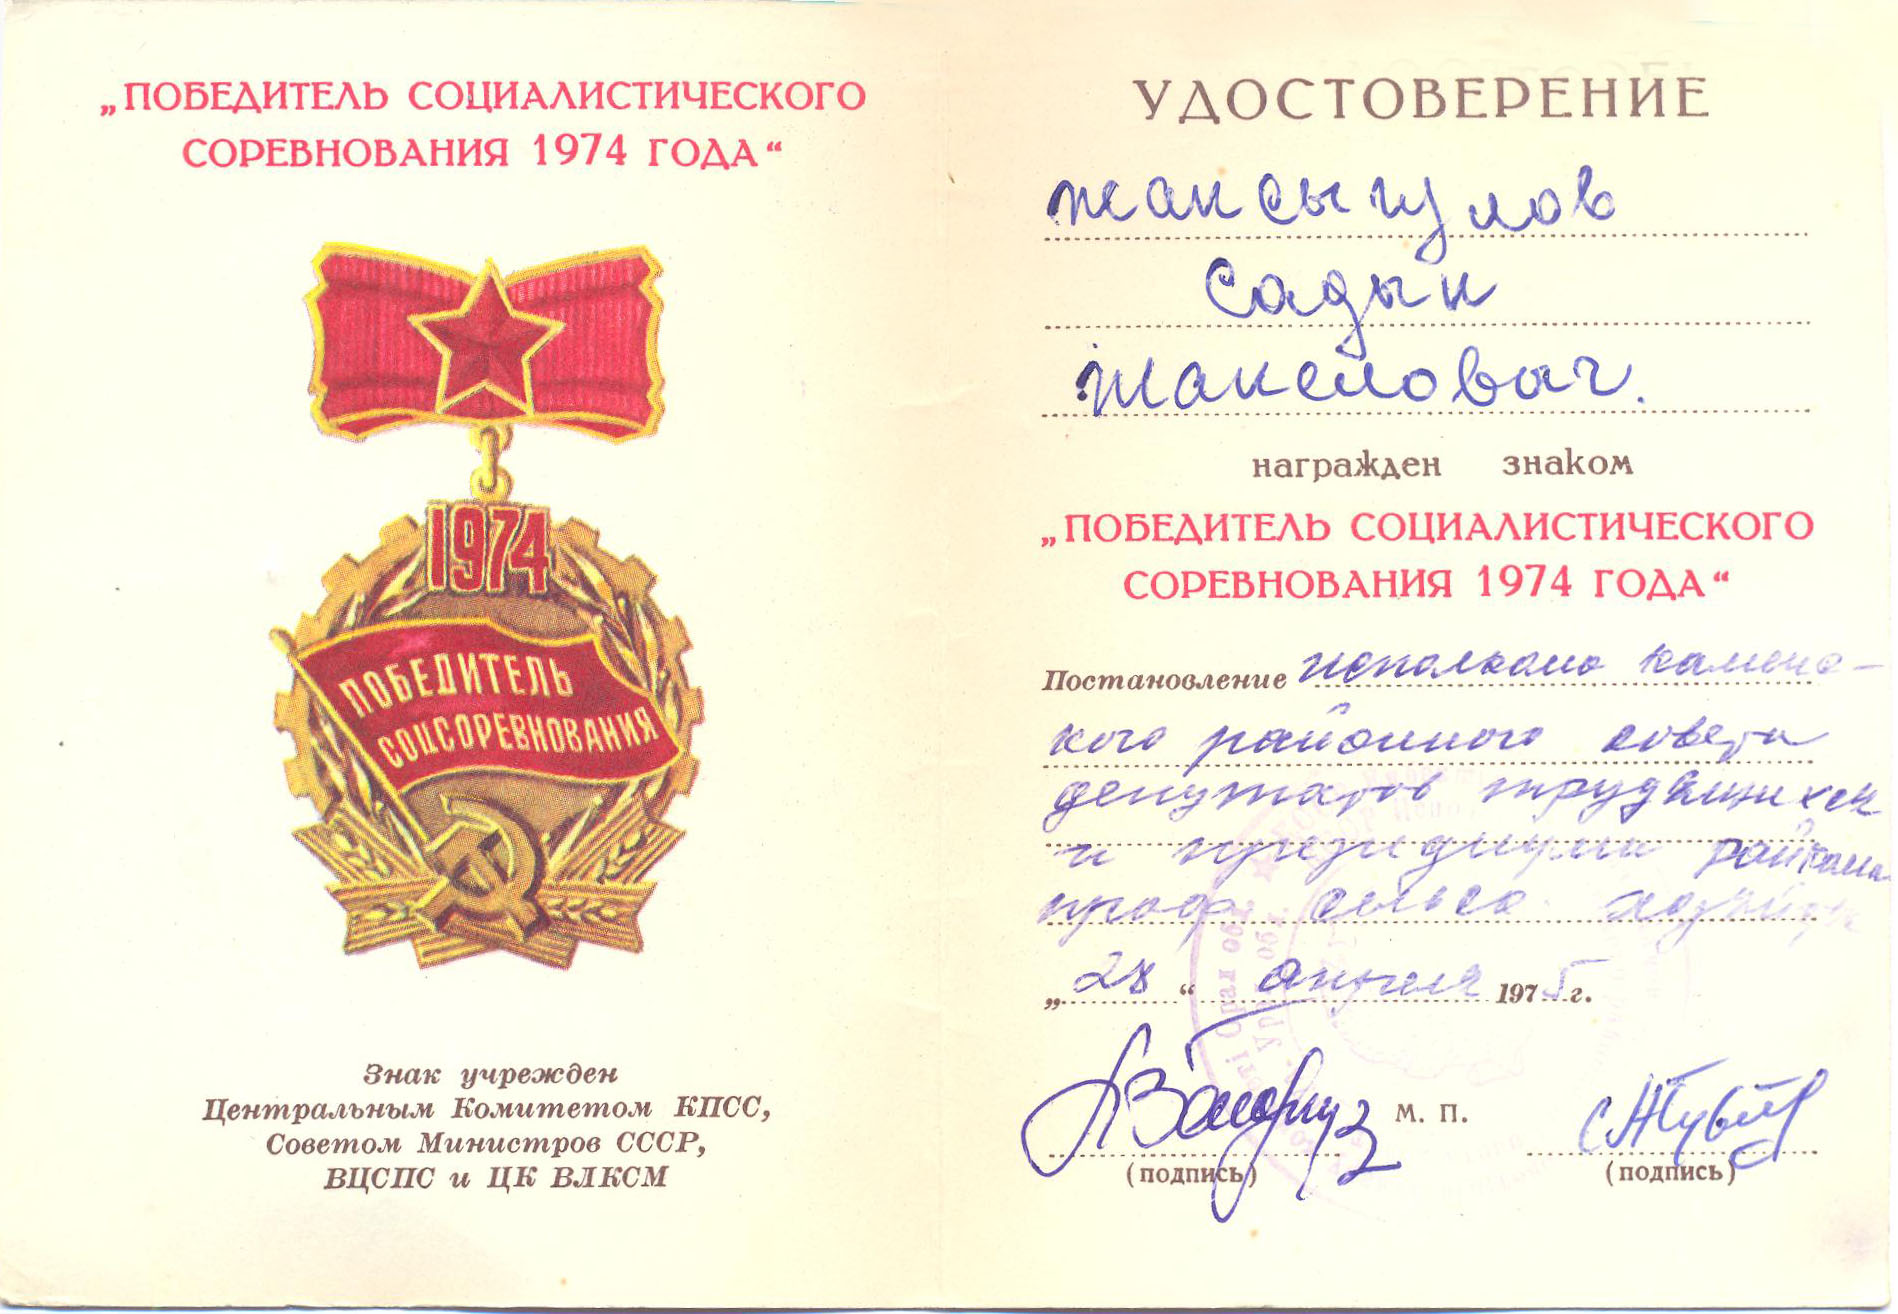 „ПОБЕДИТЕЛЬ СОЦИАЛИСТИЧЕСКОГО
СОРЕВНОВАНИЯ 1974 ГОДА“
1974
ПОБЕДИТЕЛЬ
СОЦСОРЕВНОВАНИЯ
Знак учрежден
Центральным Комитетом КПСС,
Советом Министров СССР,
ВЦСПС и ЦК ВЛКСМ
УДОСТОВЕРЕНИЕ
Жаксыгулов
Садык
награжден знаком
„ПОБЕДИТЕЛЬ СОЦИАЛИСТИЧЕСКОГО
СОРЕВНОВАНИЯ 1974 ГОДА“
Постановление исполкома каменс-
кого районного совета
депутатов трудящихся
и президиума райкома
проф сельхо
„28“ апреля 1975 г.
М. П.
(подпись) (подпись)